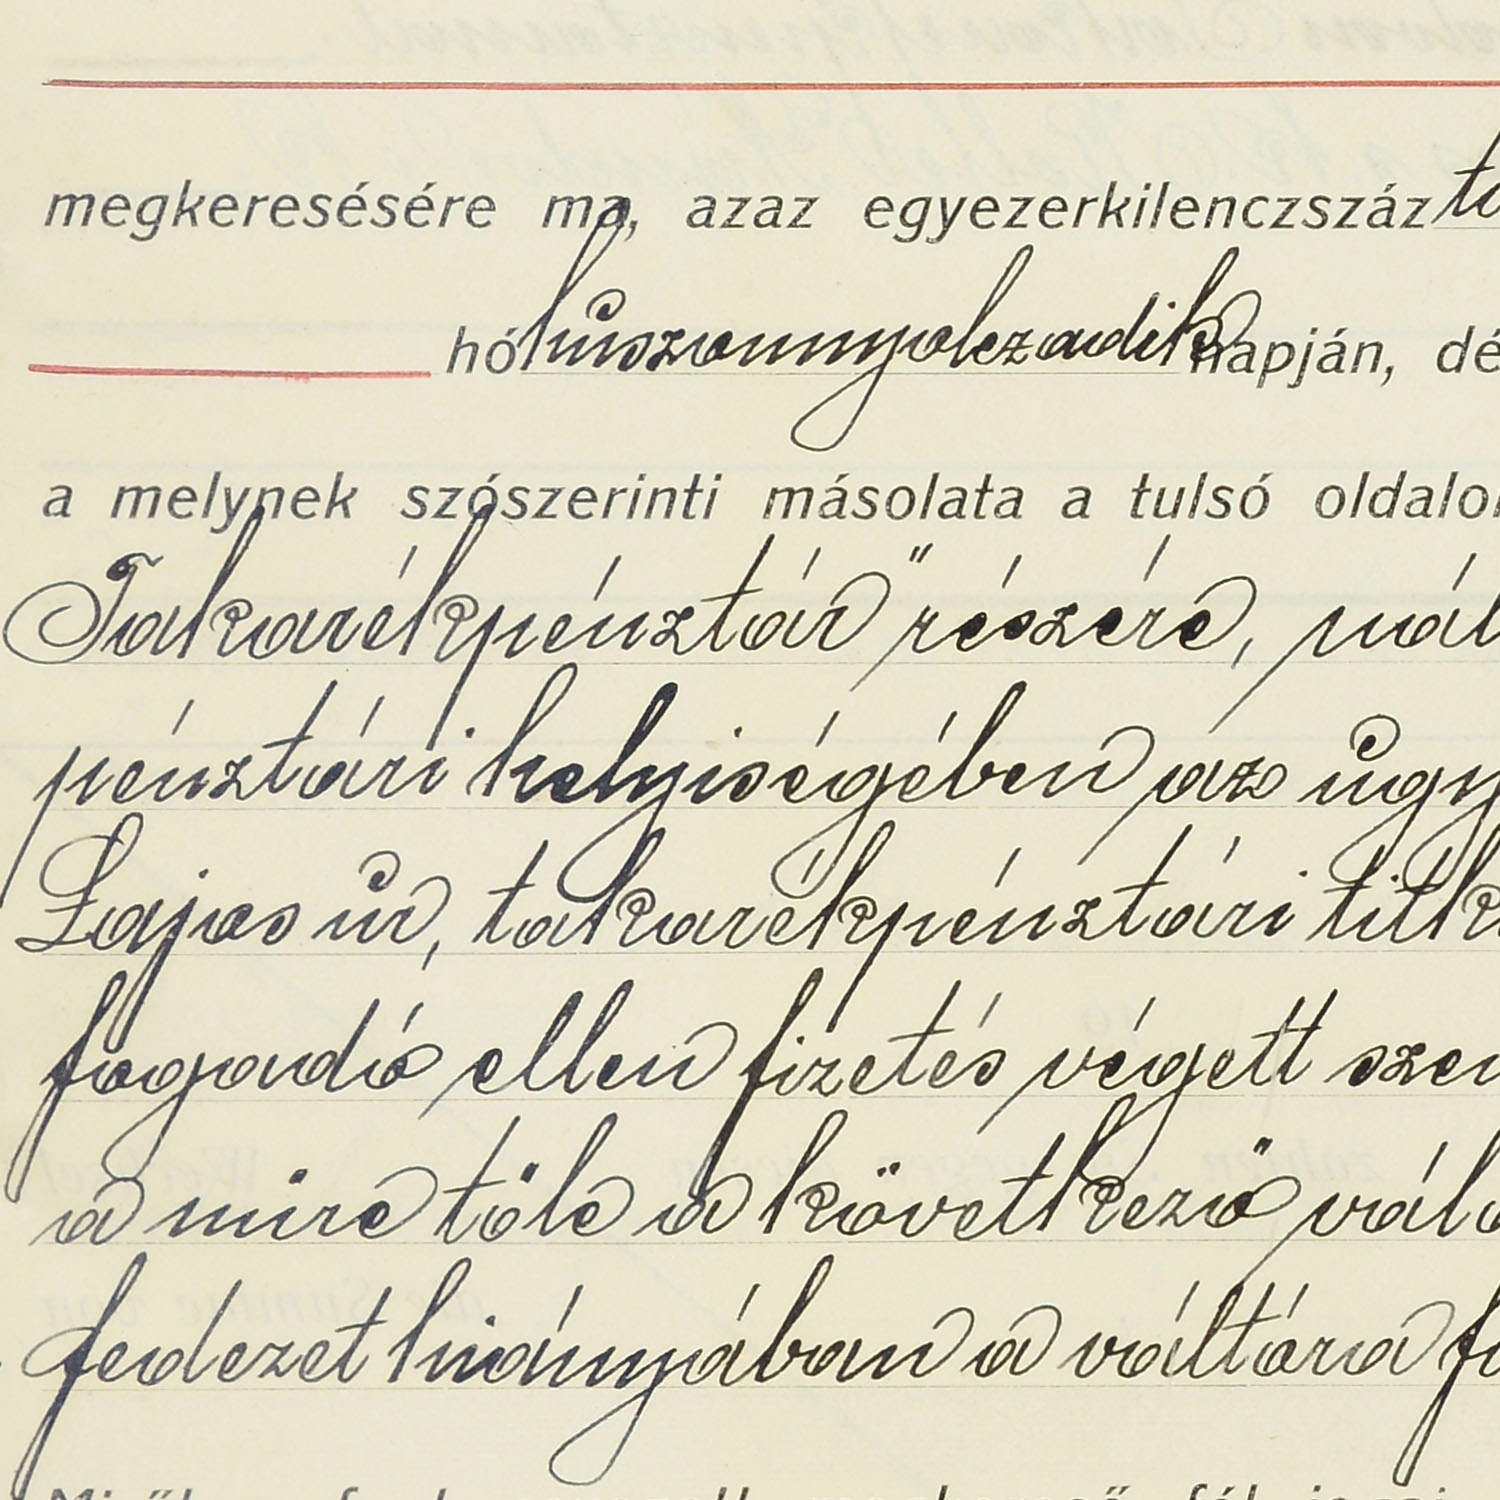 megkeresésére ma, azaz egyezerkilenczszáz
hó huszonnyolczadik napján, dé
a melynek szószerinti másolata a tulsó oldalon
Takarékpénztár" részére,
pénztári helyiségében az ügy
Lajos úr, takarékpénztári titk
fogadó ellen fizetés végett szem
a mire tőle a következő vála
fedezet hiányában a váltóra fi